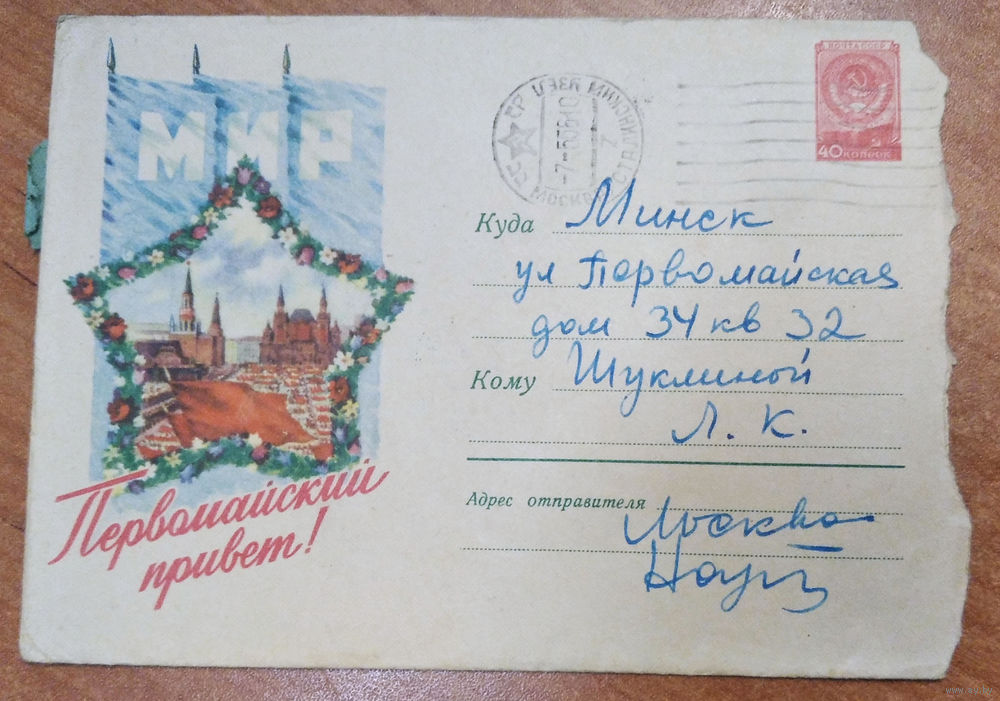 МИР
Первомайский
привет!
ПОЧТА СССР
40 КОПЕЕК
МОСКВА
Куда Минск
ул Первомайская
дом 34 кв 32
Кому Шуклиной
Л. К.
Адрес отправителя Москва
www.ay.by